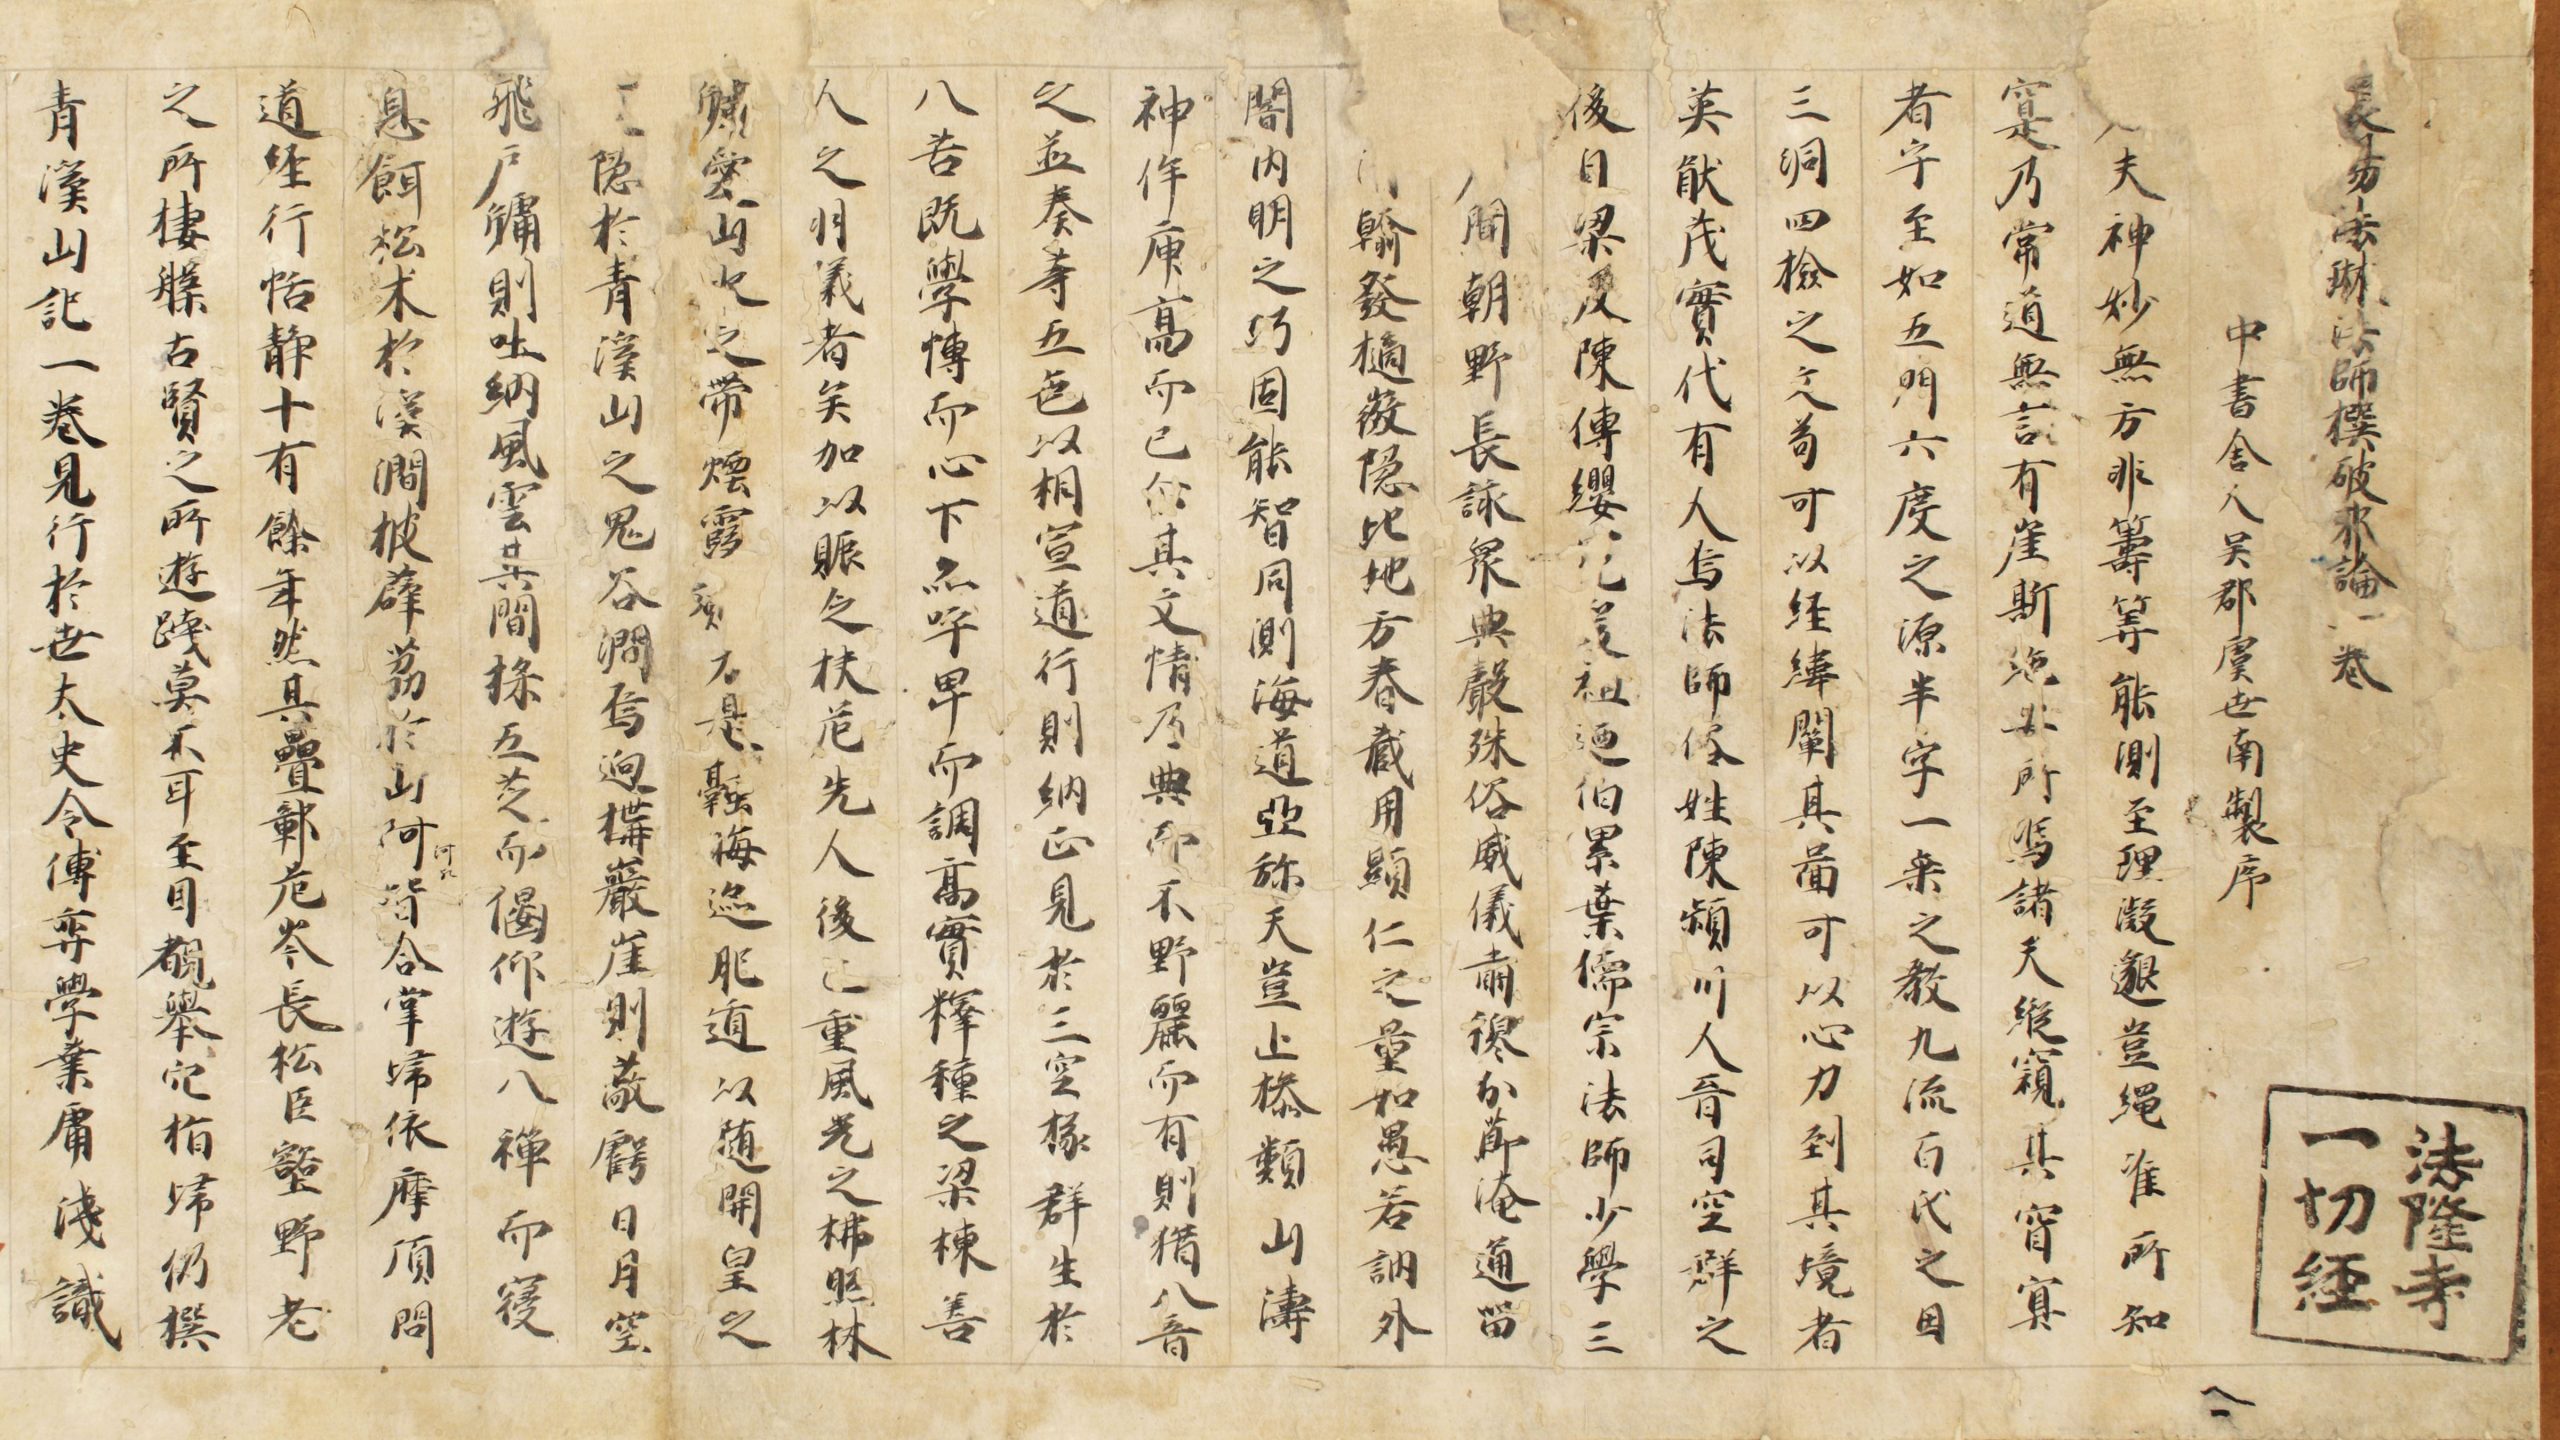 長安法琳法師撰破邪論一卷
中書舍人吴郡虞世南製序
夫神妙無方非籌筭能測至理凝邈豈繩准所知
寔乃常道無言有崖斯絶安所寄諸天縱窺其窅寘
者字至如五門六度之源半字一乗之教九流百氏之目
三洞四檢之文苟可以経緯闡其圖可以心力到其境者
英猷茂實代有人焉法師俗姓陳潁川人晋司空群之
後自梁及陳傳纓祖迺伯累葉儒宗法師少學三
聞朝野長詠衆典聲殊俗威儀肅穆介節淹通留
翰發擿微隠比地方春蔵用顯仁之量如愚若訥外
闇内明之巧固能智同測海道亞称天豈止㮣類山濤
神侔庾髙而已介其文情乃典而不野麗而有則猶八音
之並奏等五色以相宣道行則納正見於三空拯群生於
八苦既學博而心下亦守卑而調髙實釋種之梁棟善
人之羽儀者矣加以賑乏扶危先人後己重風光之拂照林
牖愛山水之帶煙霞 於是韜海迹肥道以随開皇之
隠於青溪山之鬼谷澗焉迥構巖崖則蔽虧日月空
飛戸牖則吐納風雲其間採五芝而偃仰遊八禪而寝
息餌松术於溪澗披薜荔於山阿皆合掌帰依摩頂問
道経行恬静十有餘年然其疊鄣危岑長松巨壑野老
之所棲䑓古賢之所遊踐莫不耳至目覩舉而指帰仍撰
青溪山記一巻見行於世太史令傅奕學業庸淺識
法隆寺
一切経